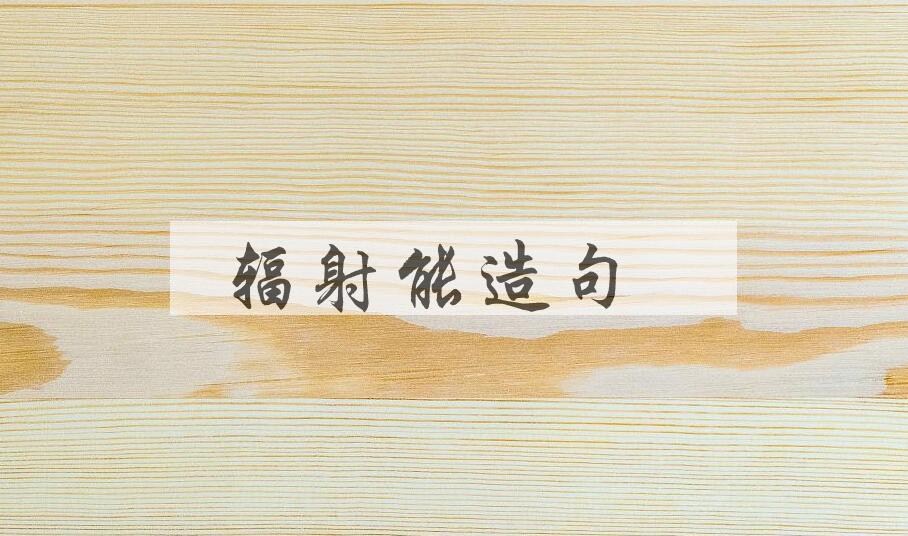 辐射能造句